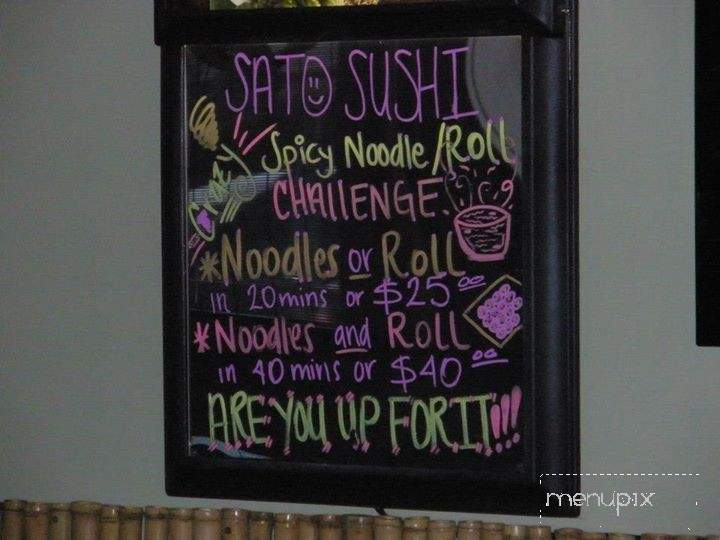 SATO SUSHI
Crazy Spicy Noodle/Roll
CHAllENGE.
*Noodles or Roll
in 20mins or $25.00
*Noodles and Roll
in 40 mins or $40.00
ARE YOU UP FOR IT!!!
menupix